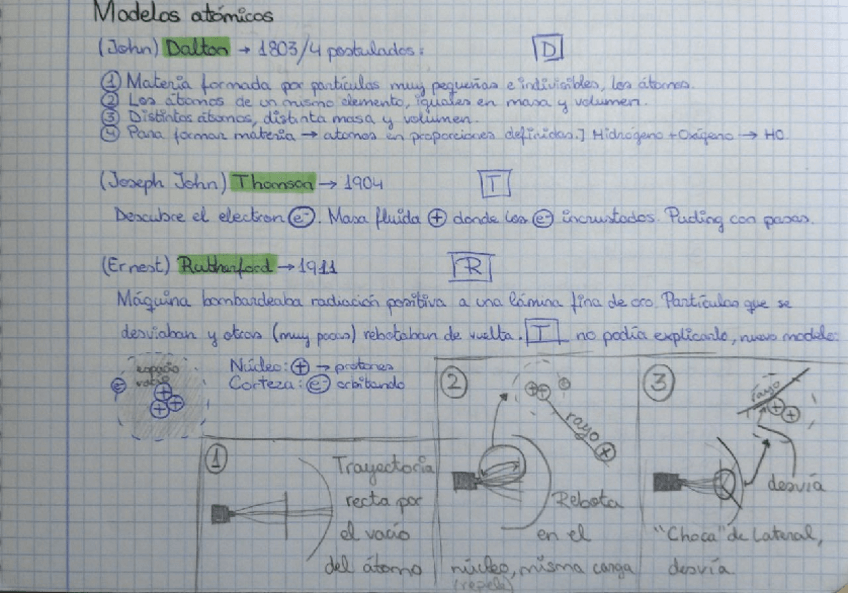 Modelos atómicos
(John) Dalton → 1803/4 postulados: D
① Materia formada por partículas muy pequeñas e indivisibles, los átomos.
② Los átomos de un mismo elemento, iguales en masa y volumen.
③ Distintos átomos, distinta masa y volumen.
④ Para formar materia → atomos en proporciones definidas.] Hidrógeno + Oxígeno → HO
(Joseph John) Thomson → 1904 T
Descubre el electron e⁻. Masa fluida + donde los e⁻ incrustados. Puding con pasas.
(Ernest) Rutherford → 1911 R
Máquina bombardeaba radiación positiva a una lámina fina de oro. Partículas que se
desviaban y otras (muy pocas) rebotaban de vuelta. T no podía explicarlo, nuevo modelo:
espacio
vacío
Núcleo: + → protones
Corteza: e⁻ orbitando
①
Trayectoria
recta por
el vacío
del átomo
②
rayo +
Rebota
en el
núcleo, misma carga
(repele)
③
rayo
desvía
"Choca" de lateral,
desvía